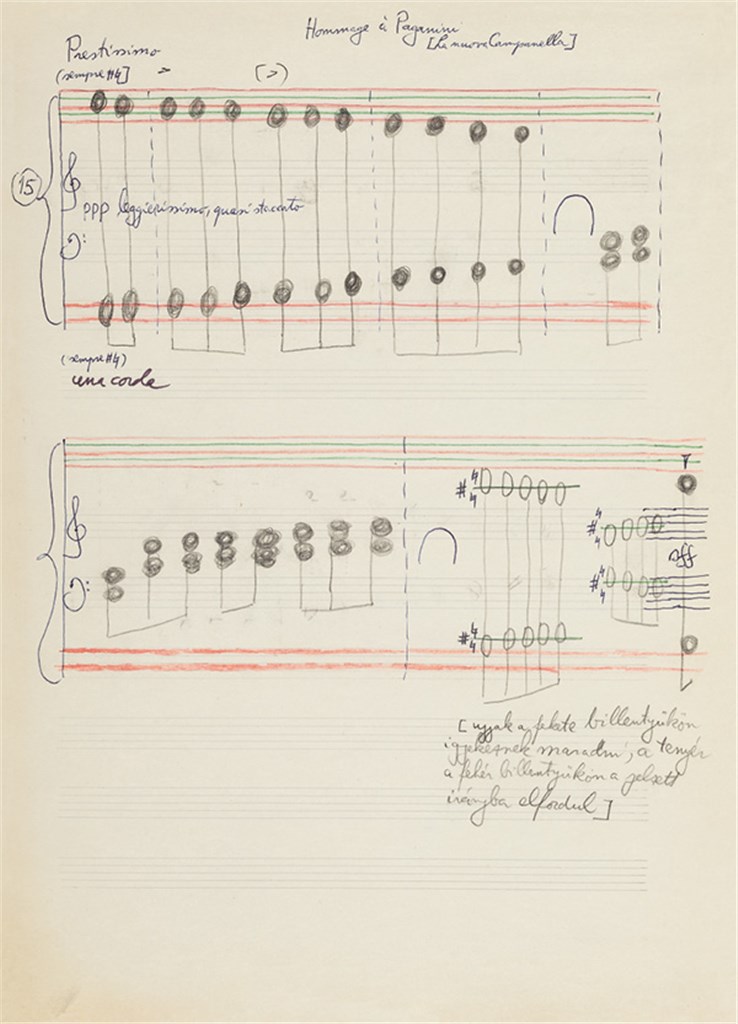 Hommage à Paganini
[La nuova Campanella]
Prestissimo
(sempre #♮]
(>)
15
ppp leggierissimo, quasi staccato
(sempre #♮)
una corda
#♮♮
#♮♮
#♮♮
sff
#♮♮
[ujjak a fekete billentyűkön
igyekeznek maradni, a tenyér
a fehér billentyűkön a jelzett
irányba elfordul]